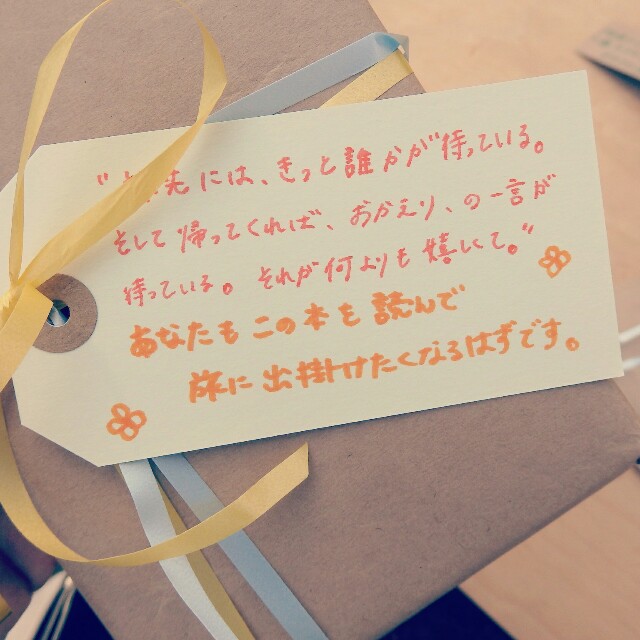 先には、きっと誰かが待っている。
そして帰ってくれば、おかえり、の一言が
待っている。それが何よりも嬉しくて。”
あなたもこの本を読んで
旅に出掛けたくなるはずです。